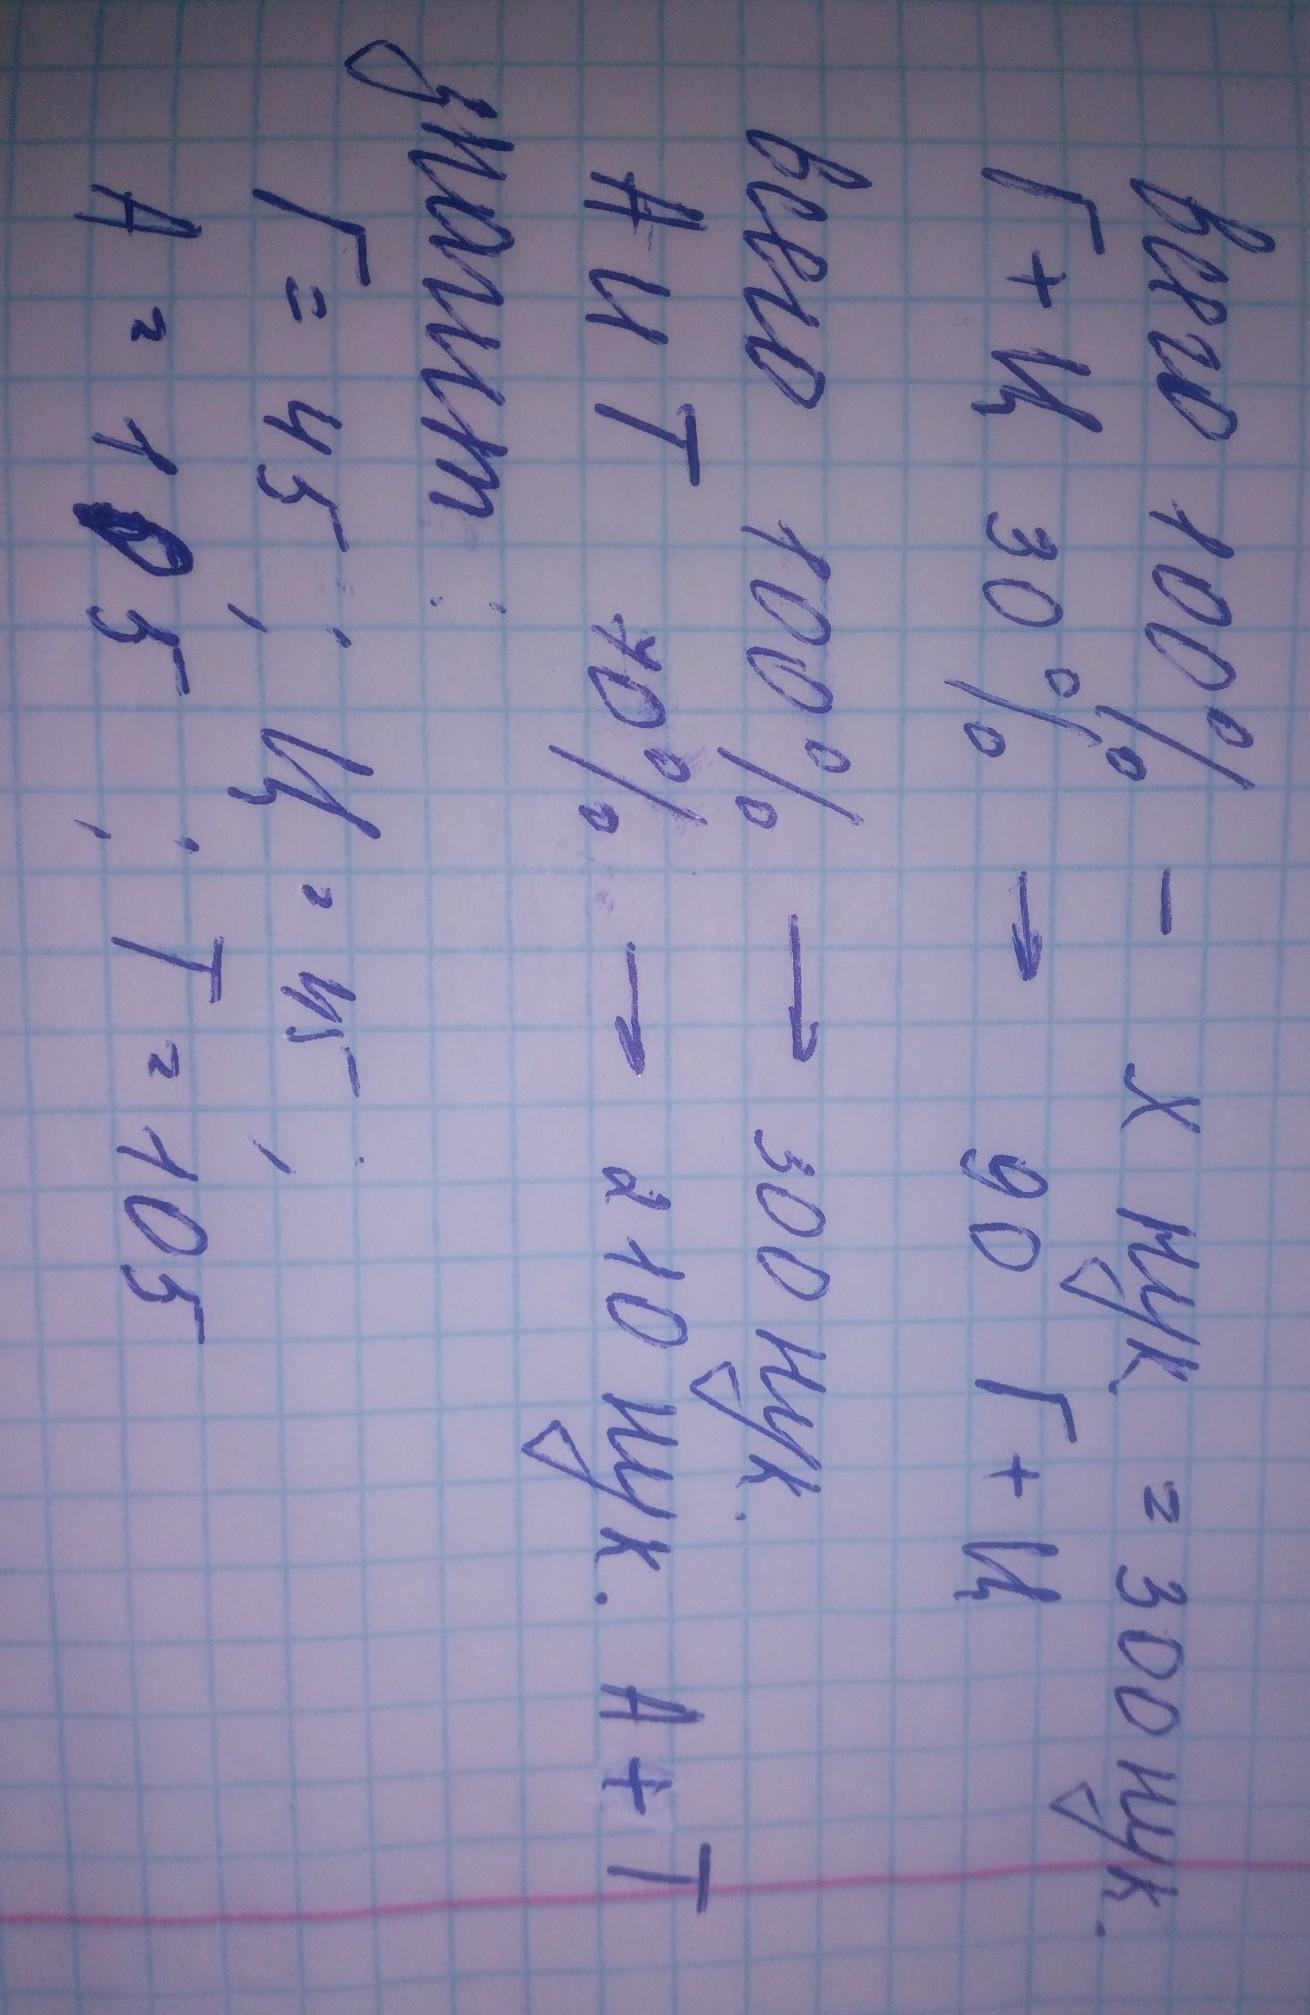 всего 100% - х нук = 300 нук.
Г + Ц 30% → 90 Г + Ц
всего 100% → 300 нук.
А и Т 70% → 210 нук. А + Т
значит:
Г = 45; Ц = 45;
А = 105; Т = 105